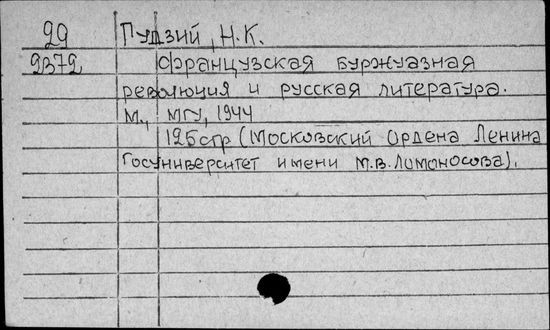 29 Гудзий, Н.К.
9372 Французская буржуазная
революция и русская литература.
М., МГУ, 1944
125стр (Московский Ордена Ленина
Госуниверситет имени М.В.Ломоносова).